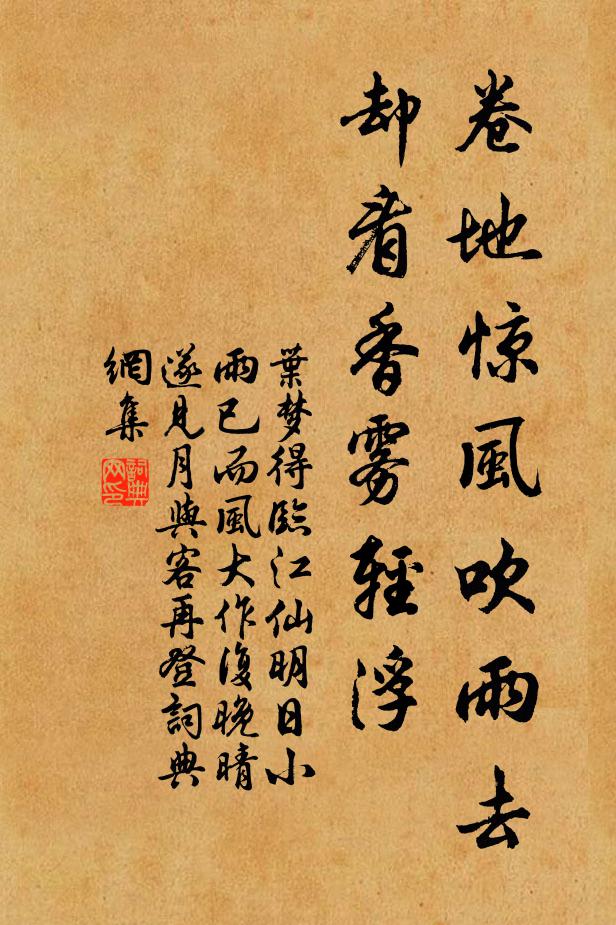 卷地惊風吹雨去
却看香雾輕浮
葉梦得臨江仙明日小
雨已而風大作復晚晴
遂見月與客再登詞典
網集
詞典
网印